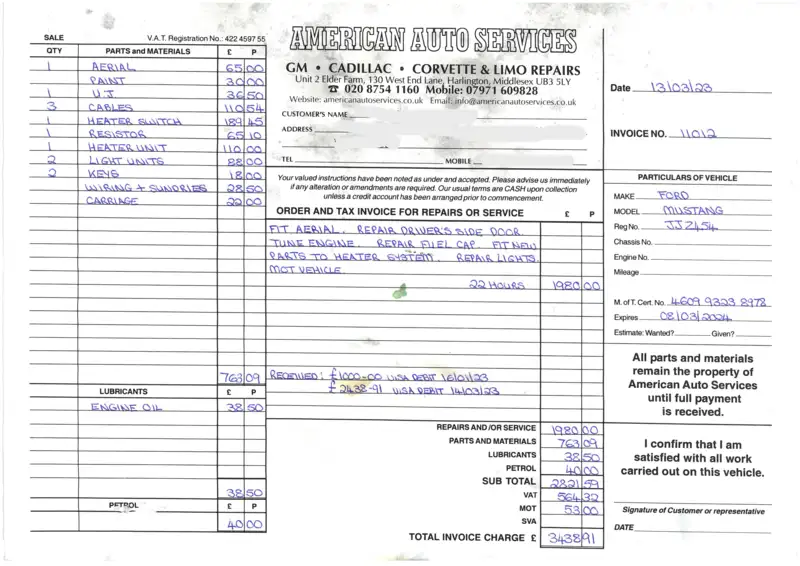 SALE V.A.T. Registration No.: 422 4597 55
QTY PARTS and MATERIALS £ P
1 AERIAL 65 00
PAINT 30 00
1 U.J. 36 50
3 CABLES 110 54
1 HEATER SWITCH 189 45
1 RESISTOR 65 10
1 HEATER UNIT 110 00
2 LIGHT UNITS 88 00
2 KEYS 18 00
WIRING + SUNDRIES 28 50
CARRIAGE 22 00
763 09
LUBRICANTS £ P
ENGINE OIL 38 50
38 50
PETROL £ P
40 00
AMERICAN AUTO SERVICES
GM • CADILLAC • CORVETTE & LIMO REPAIRS
Unit 2 Elder Farm, 130 West End Lane, Harlington, Middlesex UB3 5LY
☎ 020 8754 1160 Mobile: 07971 609828
Website: americanautoservices.co.uk Email: info@americanautoservices.co.uk
CUSTOMER'S NAME
ADDRESS
TEL MOBILE
Your valued instructions have been noted as under and accepted. Please advise us immediately
if any alteration or amendments are required. Our usual terms are CASH upon collection
unless a credit account has been arranged prior to commencement.
ORDER AND TAX INVOICE FOR REPAIRS OR SERVICE £ P
FIT AERIAL. REPAIR DRIVER'S SIDE DOOR.
TUNE ENGINE. REPAIR FUEL CAP. FIT NEW
PARTS TO HEATER SYSTEM. REPAIR LIGHTS.
MOT VEHICLE.
22 HOURS 1980 00
RECEIVED: £1000-00 VISA DEBIT 16/01/23
£2438-91 VISA DEBIT 14/03/23
REPAIRS AND/OR SERVICE 1980 00
PARTS AND MATERIALS 763 09
LUBRICANTS 38 50
PETROL 40 00
SUB TOTAL 2821 59
VAT 564 32
MOT 53 00
SVA
TOTAL INVOICE CHARGE £ 3438 91
Date 13/03/23
INVOICE NO. 11012
PARTICULARS OF VEHICLE
MAKE FORD
MODEL MUSTANG
Reg No. JJZ454
Chassis No.
Engine No.
Mileage
M. of T. Cert. No. 4609 9323 8978
Expires 08/03/2024
Estimate: Wanted? Given?
All parts and materials
remain the property of
American Auto Services
until full payment
is received.
I confirm that I am
satisfied with all work
carried out on this vehicle.
Signature of Customer or representative
DATE